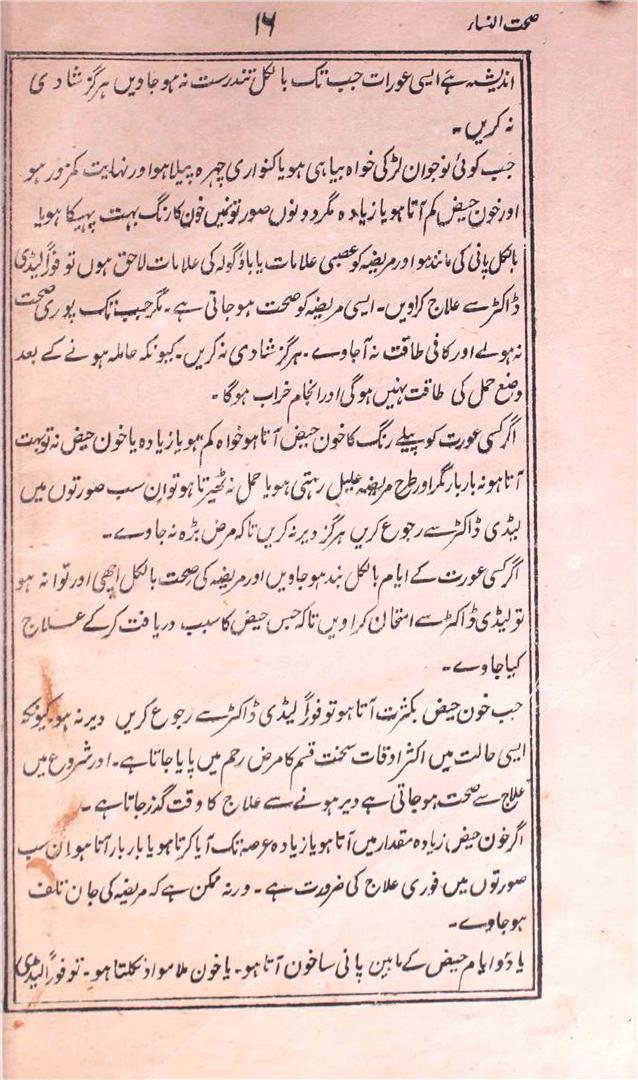 صحت النساء
۱۶
اندیشہ ہے ایسی عورات جب تک بالکل تندرست نہ ہو جاویں ہرگز شادی
نہ کریں۔
جب کوئی نوجوان لڑکی خواہ بیاہی ہو یا کنواری چہرہ پیلا ہو اور نہایت کمزور ہو
اور خون حیض کم آتا ہو یا زیادہ مگر دونوں صورتونمیں خون کا رنگ بہت پھیکا ہو یا
بالکل پانی کی مانند ہو اور مریضہ کو عصبی علامات یا باؤ گولہ کی علامات لاحق ہوں تو فوراً لیڈی
ڈاکٹر سے علاج کراویں۔ ایسی مریضہ کو صحت ہو جاتی ہے۔ مگر جب تک پوری صحت
نہ ہولے اور کافی طاقت نہ آجاوے۔ ہرگز شادی نہ کریں۔ کیونکہ حاملہ ہونے کے بعد
وضع حمل کی طاقت نہیں ہوگی اور انجام خراب ہوگا۔
اگر کسی عورت کو پیلے رنگ کا خون حیض آتا ہو خواہ کم ہو یا زیادہ یا خون حیض نہ تو بہت
آتا ہو نہ بار بار مگر اور طرح مریضہ علیل رہتی ہو یا حمل نہ ٹھیرتا ہو تو ان سب صورتوں میں
لیڈی ڈاکٹر سے رجوع کریں ہرگز دیر نہ کریں تاکہ مرض بڑہ نہ جاوے۔
اگر کسی عورت کے ایام بالکل بند ہو جاویں اور مریضہ کی صحت بالکل اچھی اور توانہ ہو
تو لیڈی ڈاکٹر سے امتحان کراویں تاکہ حبس حیض کا سبب دریافت کرکے علاج
کیا جاوے۔
جب خون حیض بکثرت آتا ہو تو فوراً لیڈی ڈاکٹر سے رجوع کریں دیر نہ ہو کیونکہ
ایسی حالت میں اکثر اوقات سخت قسم کا مرض رحم میں پایا جاتا ہے۔ اور شروع میں
علاج سے صحت ہو جاتی ہے دیر ہونے سے علاج کا وقت گذر جاتا ہے۔
اگر خون حیض زیادہ مقدار میں آتا ہو یا زیادہ عرصہ تک آیا کرتا ہو یا بار بار آتا ہو ان سب
صورتوں میں فوری علاج کی ضرورت ہے۔ ورنہ ممکن ہے کہ مریضہ کی جان تلف
ہو جاوے۔
یا دو ایام حیض کے مابین پانی سا خون آتا ہو۔ یا خون ملا مواد نکلتا ہو۔ تو فوراً لیڈی